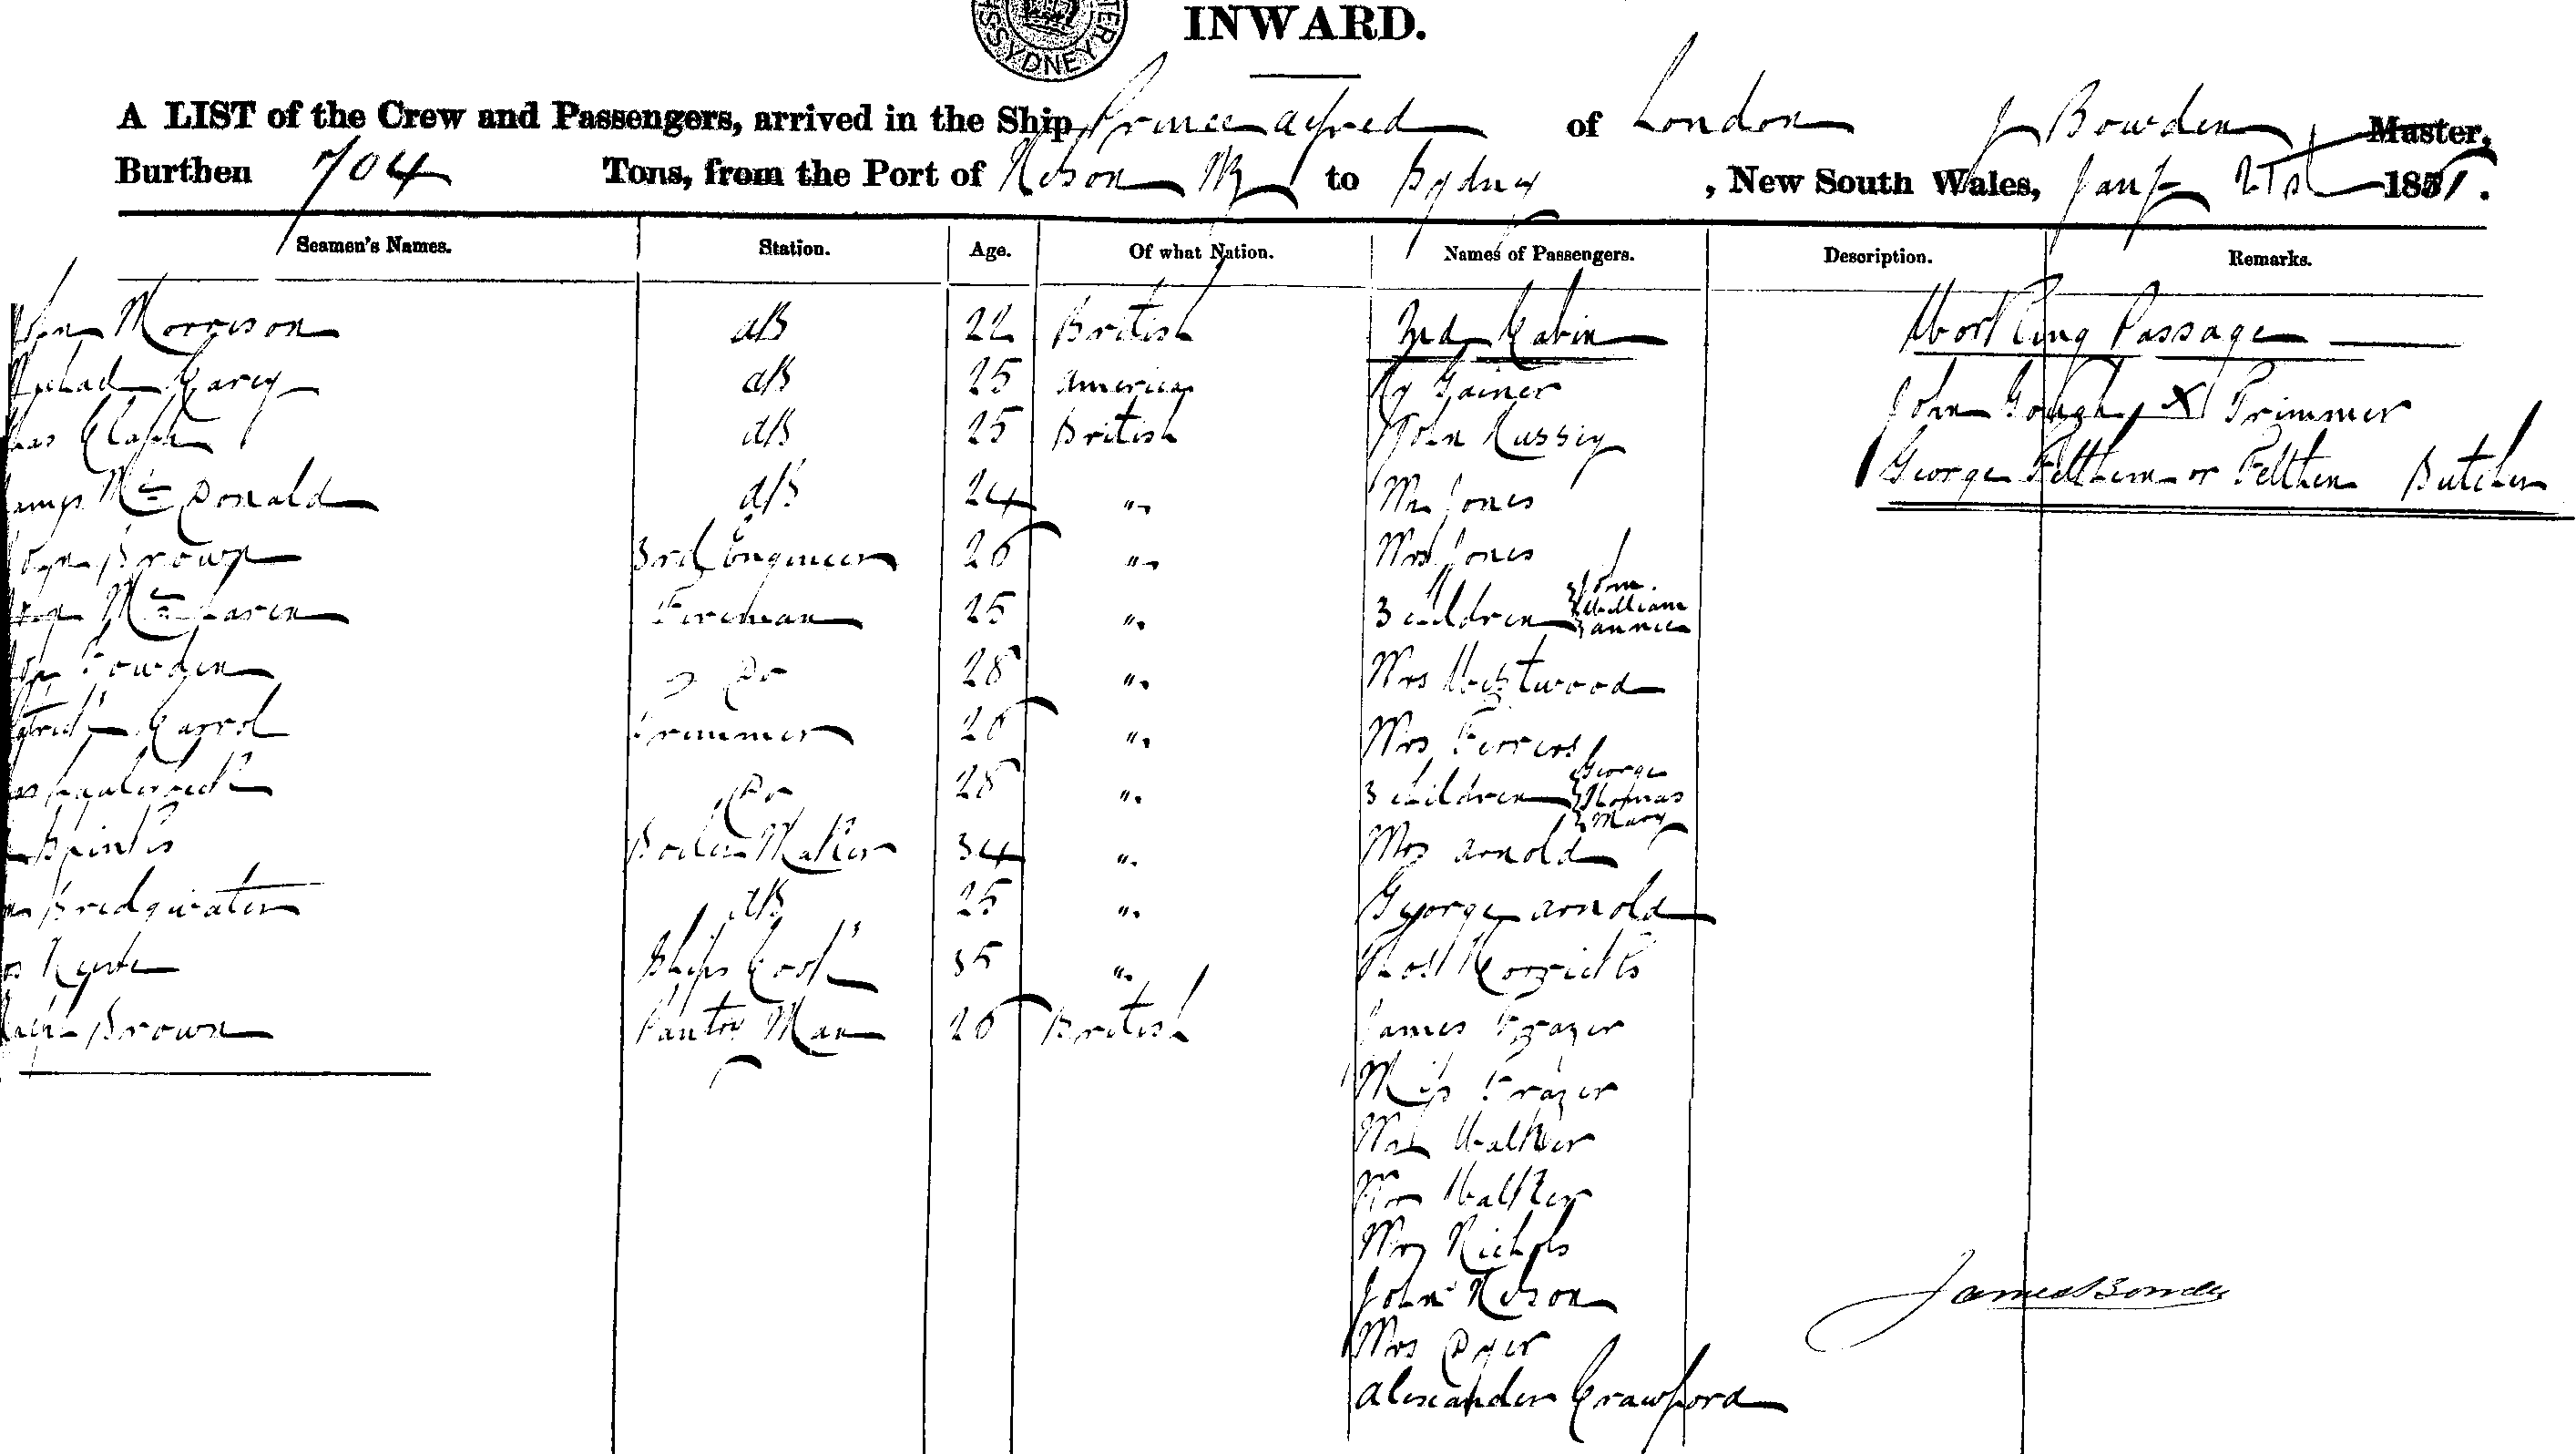 SYDNEY
INWARD.
A LIST of the Crew and Passengers, arrived in the Ship Prince Alfred of London J Bowden Master,
Burthen 704 Tons, from the Port of Nelson NZ to Sydney , New South Wales, Jany 21st 18
Seamen's Names. Station. Age. Of what Nation. Names of Passengers. Description. Remarks.
John Morrison AB 22 British 2nd Cabin Working Passage
Michael Carey AB 25 America Gainer John Gough X Trimmer
Chas Clark AB 25 British John Hussey George Felthem or Felthen Butcher
James Mc Donald AB 24 " Mr Jones
John Brown 3rd Engineer 26 " Mrs Jones
Mc Laren Fireman 25 " 3 children John William Annie
Fowden Do 28 " Mrs Westwood
Patrick Carrol Trimmer 26 " Mrs Ferrers
Do 28 " 3 children George Thomas Mary
Spinks Boiler Maker 34 " Mrs Arnold
Bridgwater AB 25 " George Arnold
Ships Cook 35 " Thos
Brown Pantry Man 26 British James Frazer
Miss Frazer
Mrs Walker
Mr Walker
Mrs Nichols
John Nelson
Mrs Dyer
Alexander Crawford
James Bowden